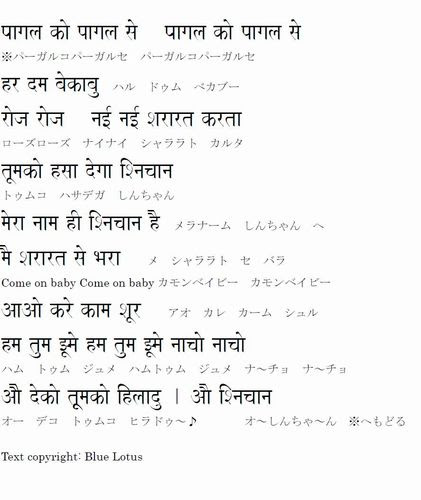 पागल को पागल से पागल को पागल से
※パーガルコパーガルセ パーガルコパーガルセ
हर दम बेकाबु ハル ドゥム ベカブー
रोज रोज नई नई शरारत करता
ローズローズ ナイナイ シャララト カルタ
तूमको हसा देगा श्निचान
トゥムコ ハサデガ しんちゃん
मेरा नाम ही श्निचान है メラナーム しんちゃん ヘ
मै शरारत से भरा メ シャララト セ バラ
Come on baby Come on baby カモンベイビー カモンベイビー
आओ करे काम शूर アオ カレ カーム シュル
हम तुम झूमे हम तुम झूमे नाचो नाचो
ハム トゥム ジュメ ハムトゥム ジュメ ナ～チョ ナ～チョ
औ देको तूमको हिलादु | औ श्निचान
オー デコ トゥムコ ヒラドゥ～♪ オ～しんちゃ～ん ※へもどる
Text copyright: Blue Lotus